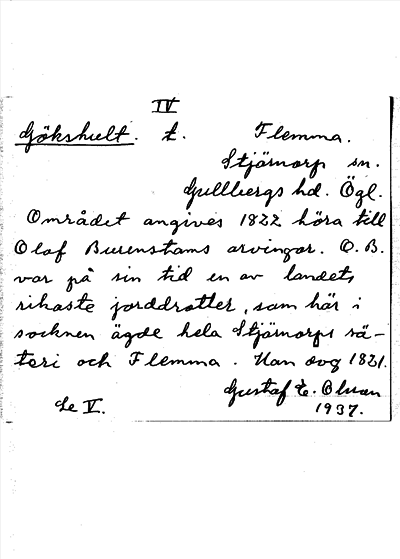 IV
Gökshult. t. Flemma.
Stjärnorp sn.
Gullbergs hd. Ögl.
Området angives 1822 höra till
Olof Burenstams arvingar. O.B.
var på sin tid en av landets
rikaste jorddrotter, som här i
socknen ägde hela Stjärnorps sä-
teri och Flemma. Han dog 1821.
Gustaf E. Olsson
Se V. 1937.